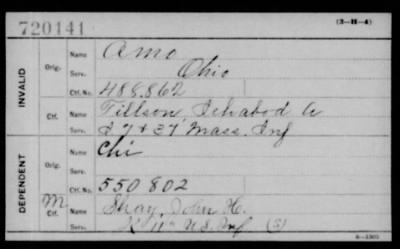 720141
(3-H-4)
INVALID
Orig. Name Amo
Serv. Ohio
Ctf. No. 488.862
Ctf. Name Tillson, Ichabod
Serv. & 37 Mass. Inf
DEPENDENT
Orig. Name Chi
Serv.
Ctf. No. 550802
M Ctf. Name Shay, John H.
Serv. K 11" U.S. Inf (S)